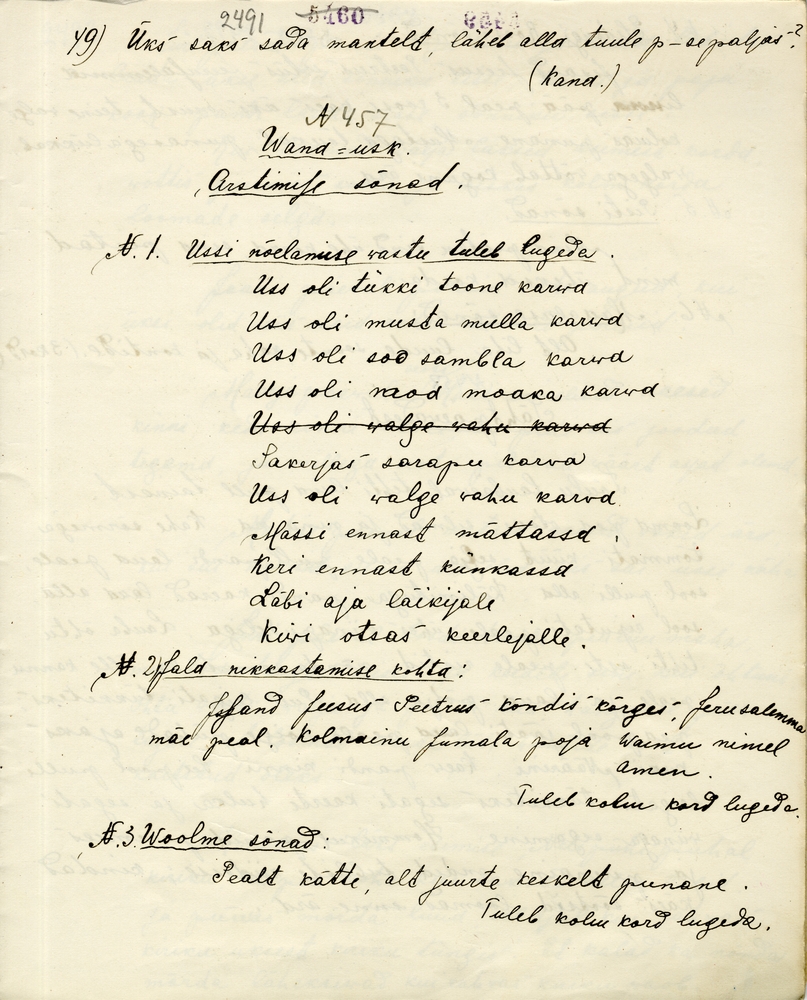 2491 5160
49) Üks saks sada mantelt, läheb alla tuule p-se paljas?
(Kand.)
N 457
Wand=usk.
Arstimise sõnad.
N. 1. Ussi nõelamise wastu tuleb lugeda.
Uss oli tükki toone karwa
Uss oli musta mulla karwa
Uss oli soo sambla karwa
Uss oli raod moaka karwa
Uss oli walge wahu karwa
Sakerjas sarapu karva
Uss oli walge wahu karwa
Mässi ennast mättassa,
Keri ennast künkassa
Läbi aja läikijale
Kiwi otsas keerlejalle.
N. 2) Jala nikkastamise kohta:
Issand Jeesus Peetrus kõndis kõrges, Jerusalemma
mäe peal. Kolmainu Jumala poja Waimu nimel
amen.
Tuleb kolm kord lugeda.
N. 3. Woolme sõnad:
Pealt kätte, alt juurte keskelt punane.
Tuleb kolm kord lugeda.